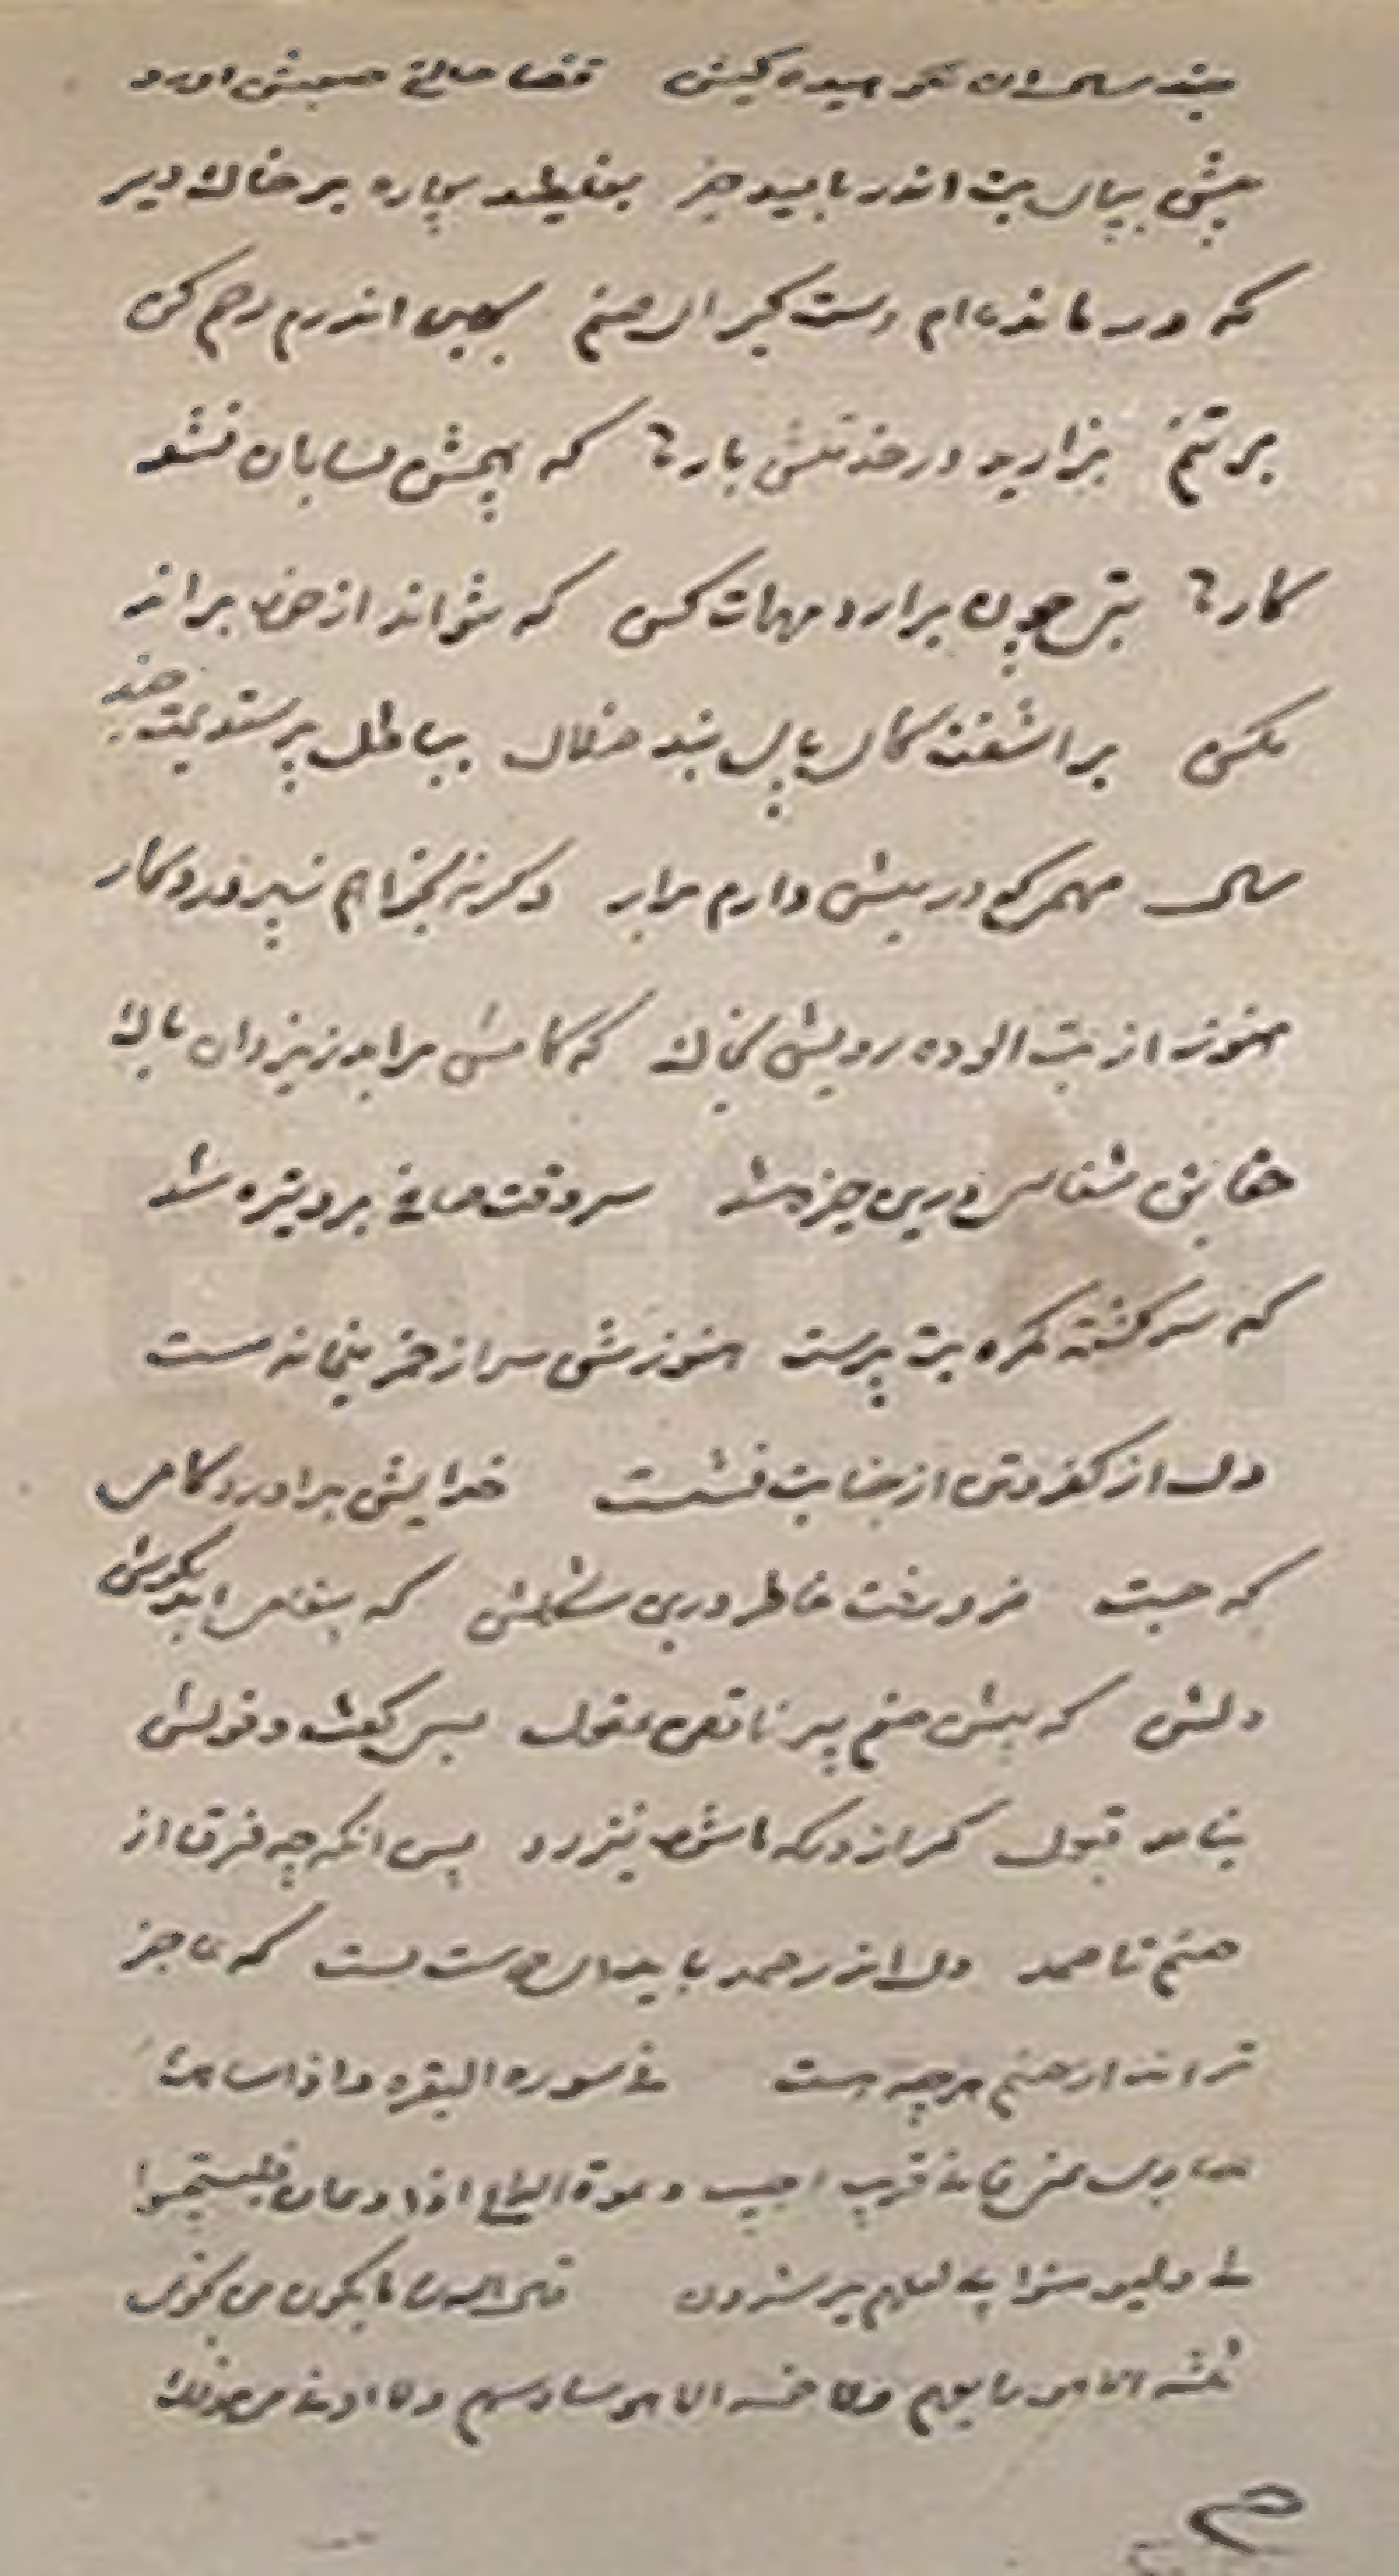 چند سال ان نکوهیده کیش قضا حالتی صعبش اورد
پیش بپای بت اندر بامید خیر بغلطید بیچاره بر خاک دیر
که درمانده‌ام دست گیر ای صنم بجان اندرم رحم کن
برتنم بزارید در خدمتش بارها که هیچش بسامان نشد
کارها بتی چون برارد مهمات کس که نتواند از خود براند
مکس براشفت کای پای بند ضلال بباطل پرستیدمت چند
سال مهمی که در پیش دارم برار وکرنه بخواهم ز پروردکار
هنوز از بت الوده رویش بخاک که کامش براورد یزدان پاک
حقایق شناسی درین خیره شد سر وقت صافی برو تیره شد
که سرکشته کمره بت پرست هنوزش سر از خمر بتخانه مست
دل از کفر و دست از خیانت نشست خدایش براورد کامی
که جست فرو رفت خاطر درین مشکلش که پیغامی امد بکوش
دلش که پیش صنم پیر ناقص عقول بسی کفت و قولش
نیامد قبول کر از درکه ما شود نیز رد پس انکه چه فرق از
صنم تا صمد دل اندر صمد باید ای دوست بست که عاجز
تراند از صنم هرچه هست فی سوره البقره واذا سالک
عبادی عنی فانی قریب اجیب دعوة الداع اذا دعان فلیستجیبوا
لی ولیومنوا بی لعلهم یرشدون قال الله تعا ما یکون من نجوی
ثلثه الا هو رابعهم ولا خمسه الا هو سادسهم ولا ادنی من ذلک